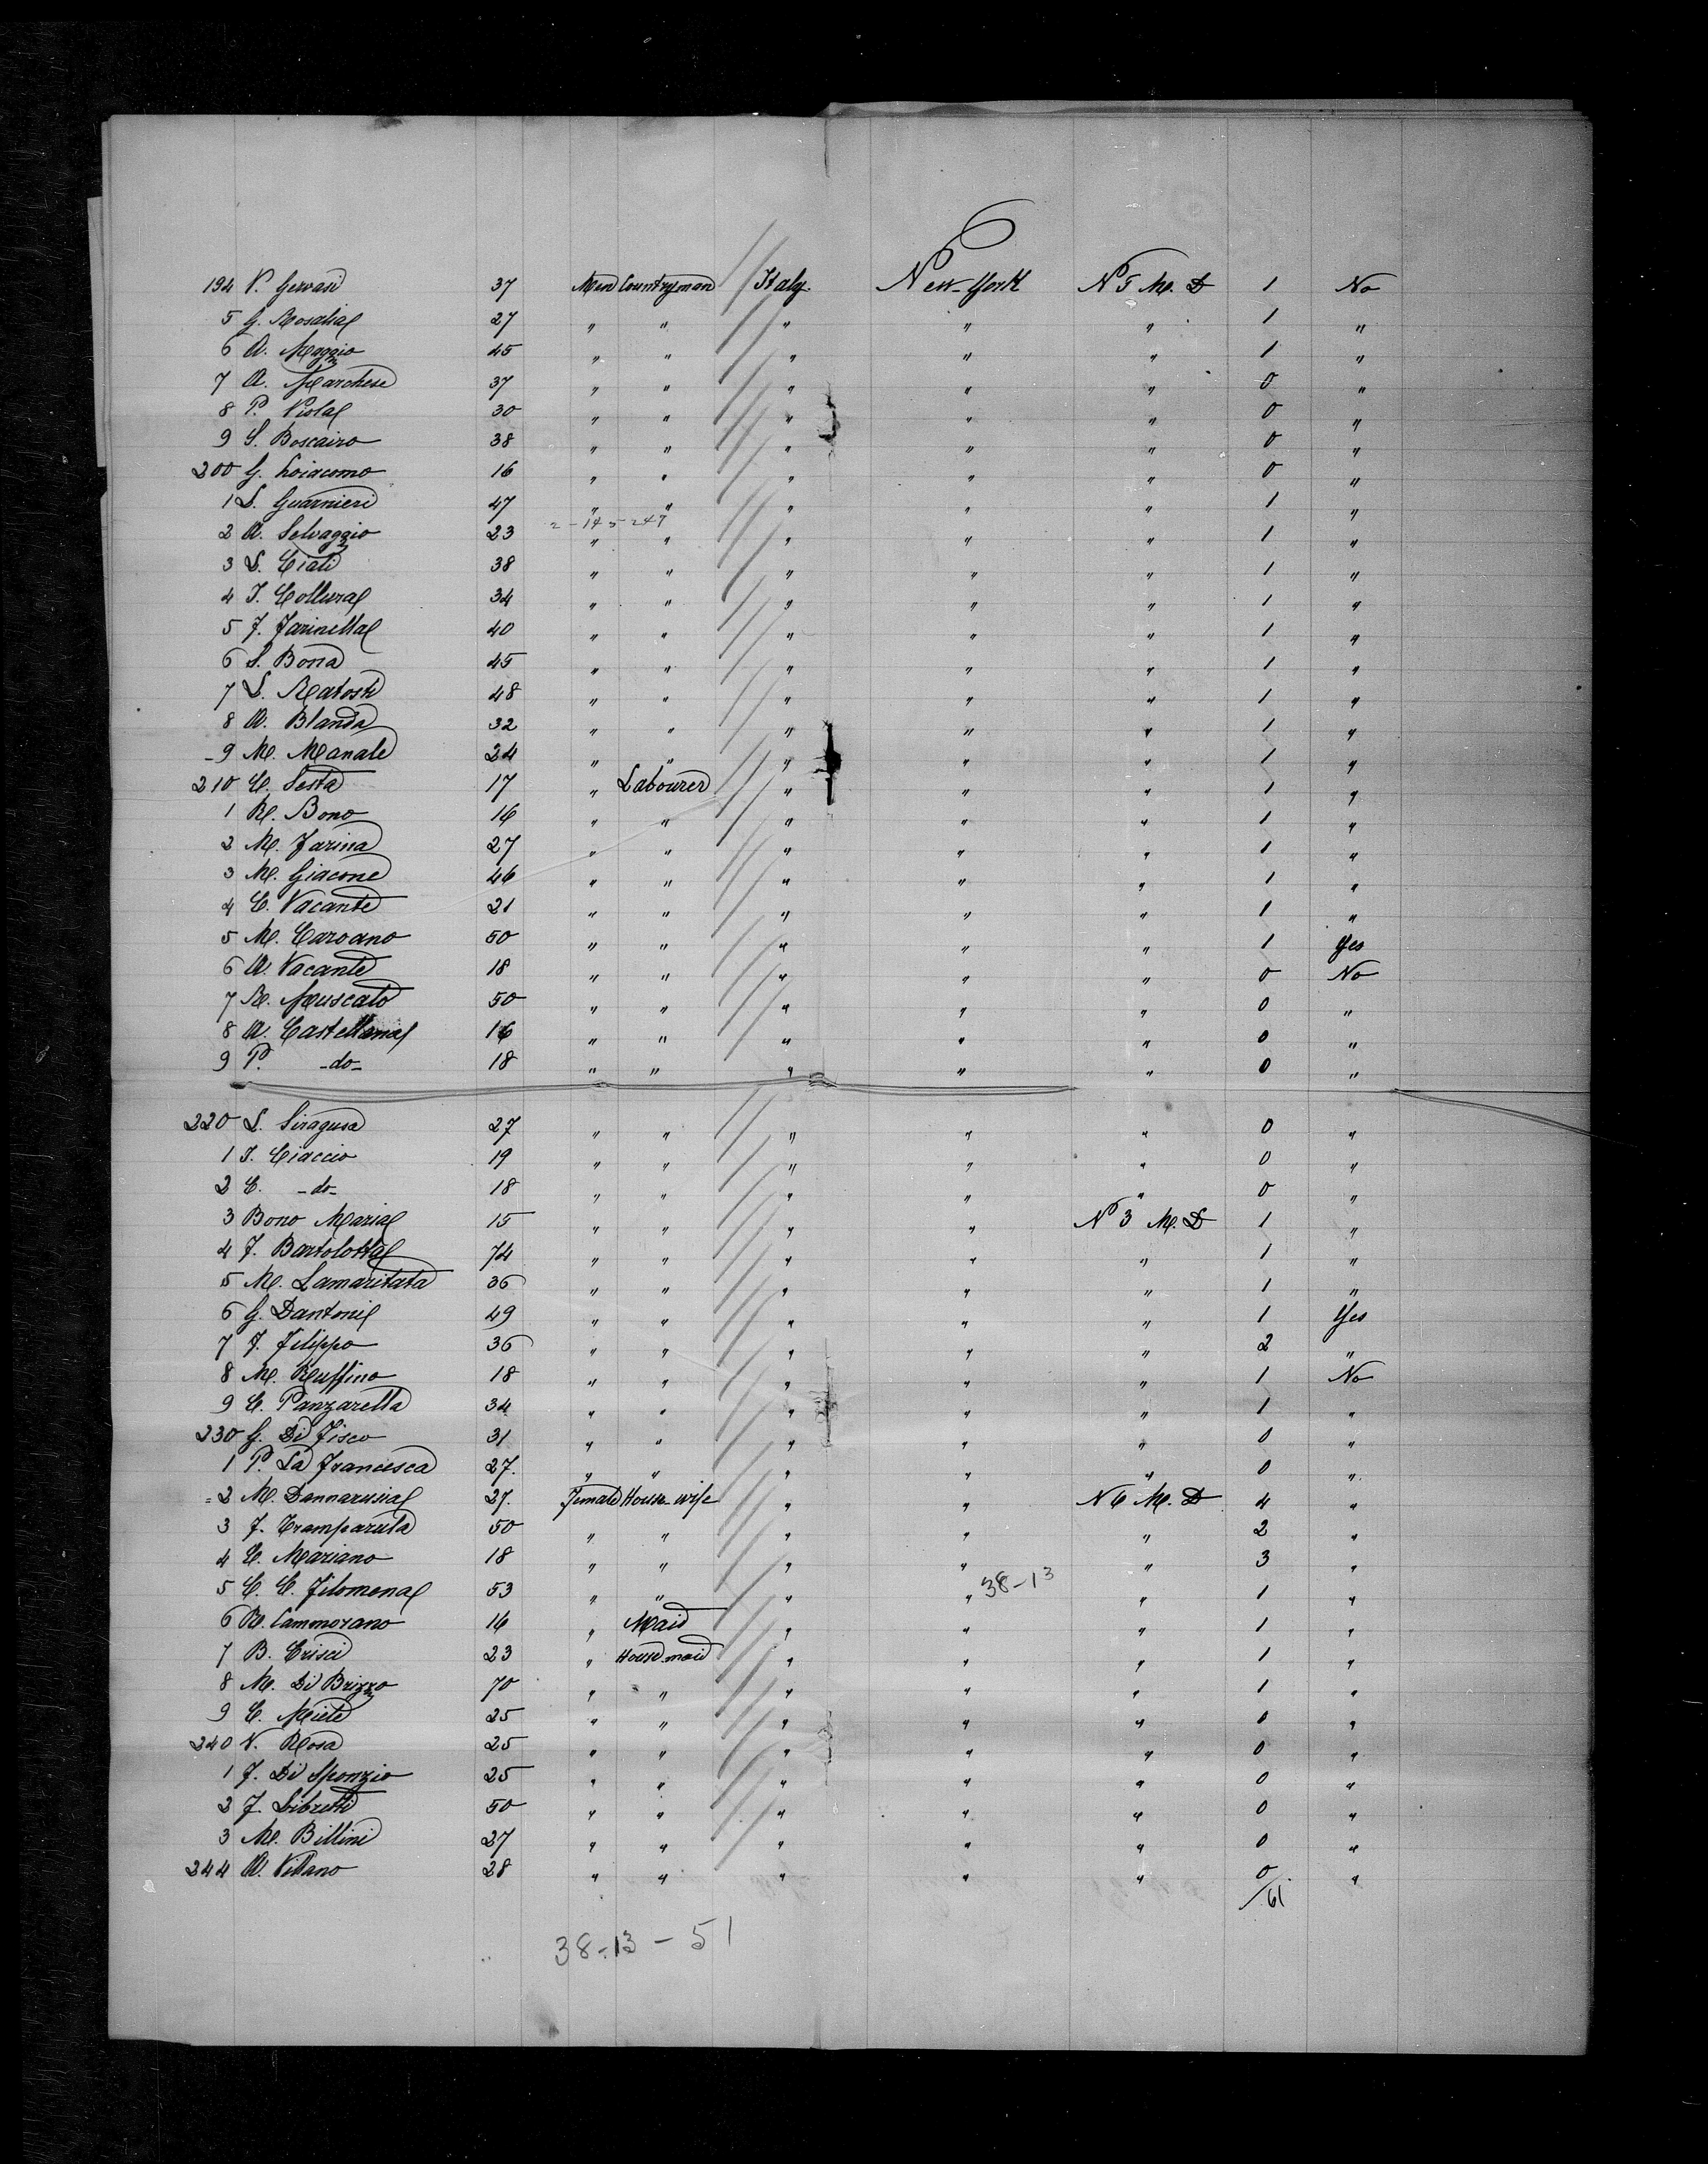 194 V. Gervasi 37 Men Countryman Italy New-York N 5 M. D 1 No
5 G. Rosalia 27 " " " " " 1 "
6 A. Maggio 45 " " " " " 1 "
7 A. Marchese 37 " " " " " 0 "
8 P. Viola 30 " " " " " 0 "
9 S. Boscairo 38 " " " " " 0 "
200 G. Loiacomo 16 " " " " " 0 "
1 S. Guarnieri 47 " " " " " 1 "
2-145249
2 A. Selvaggio 23 " " " " " 1 "
3 S. Ciati 38 " " " " " 1 "
4 I. Collura 34 " " " " " 1 "
5 F. Farinella 40 " " " " " 1 "
6 S. Bona 45 " " " " " 1 "
7 S. Ratosti 48 " " " " " 1 "
8 A. Blanda 32 " " " " " 1 "
9 M. Manale 24 " " " " " 1 "
210 C. Sesta 17 " Labourer " " " 1 "
1 R. Bono 16 " " " " " 1 "
2 M. Farina 27 " " " " " 1 "
3 M. Giacone 46 " " " " " 1 "
4 C. Vacante 21 " " " " " 1 "
5 M. Caroano 50 " " " " " 1 Yes
6 A. Vacante 18 " " " " " 0 No
7 R. Muscato 50 " " " " " 0 "
8 A. Castellana 16 " " " " " 0 "
9 P. -do- 18 " " " " " 0 "
220 S. Siragusa 27 " " " " " 0 "
1 I. Ciaccio 19 " " " " " 0 "
2 C. -do- 18 " " " " " 0 "
3 Bono Maria 15 " " " " N 3 M. D 1 "
4 F. Bartolotta 74 " " " " " 1 "
5 M. Lamaritata 36 " " " " " 1 "
6 G. Dantoni 49 " " " " " 1 Yes
7 F. Filippo 36 " " " " " 2 "
8 M. Ruffino 18 " " " " " 1 No
9 C. Panzarella 34 " " " " " 1 "
230 G. Di Fisco 31 " " " " " 0 "
1 P. La Francesca 27. " " " " " 0 "
2 M. Dannarusia 27. Female House-wife " " N 6 M. D 4 "
3 F. Tramparula 50 " " " " " 2 "
4 C. Mariano 18 " " " " " 3 "
38-13
5 C. C. Filomena 53 " " " " " 1 "
6 R. Cammorano 16 " Maid " " " 1 "
7 B. Crisci 23 " House-maid " " " 1 "
8 M. Di Brizzo 70 " " " " " 1 "
9 C. Miele 25 " " " " " 0 "
240 V. Rosa 25 " " " " " 0 "
1 F. Di Sponzio 25 " " " " " 0 "
2 F. Libretti 50 " " " " " 0 "
3 M. Billini 27 " " " " " 0 "
244 A. Villano 28 " " " " " 0 "
/61
38-13-51